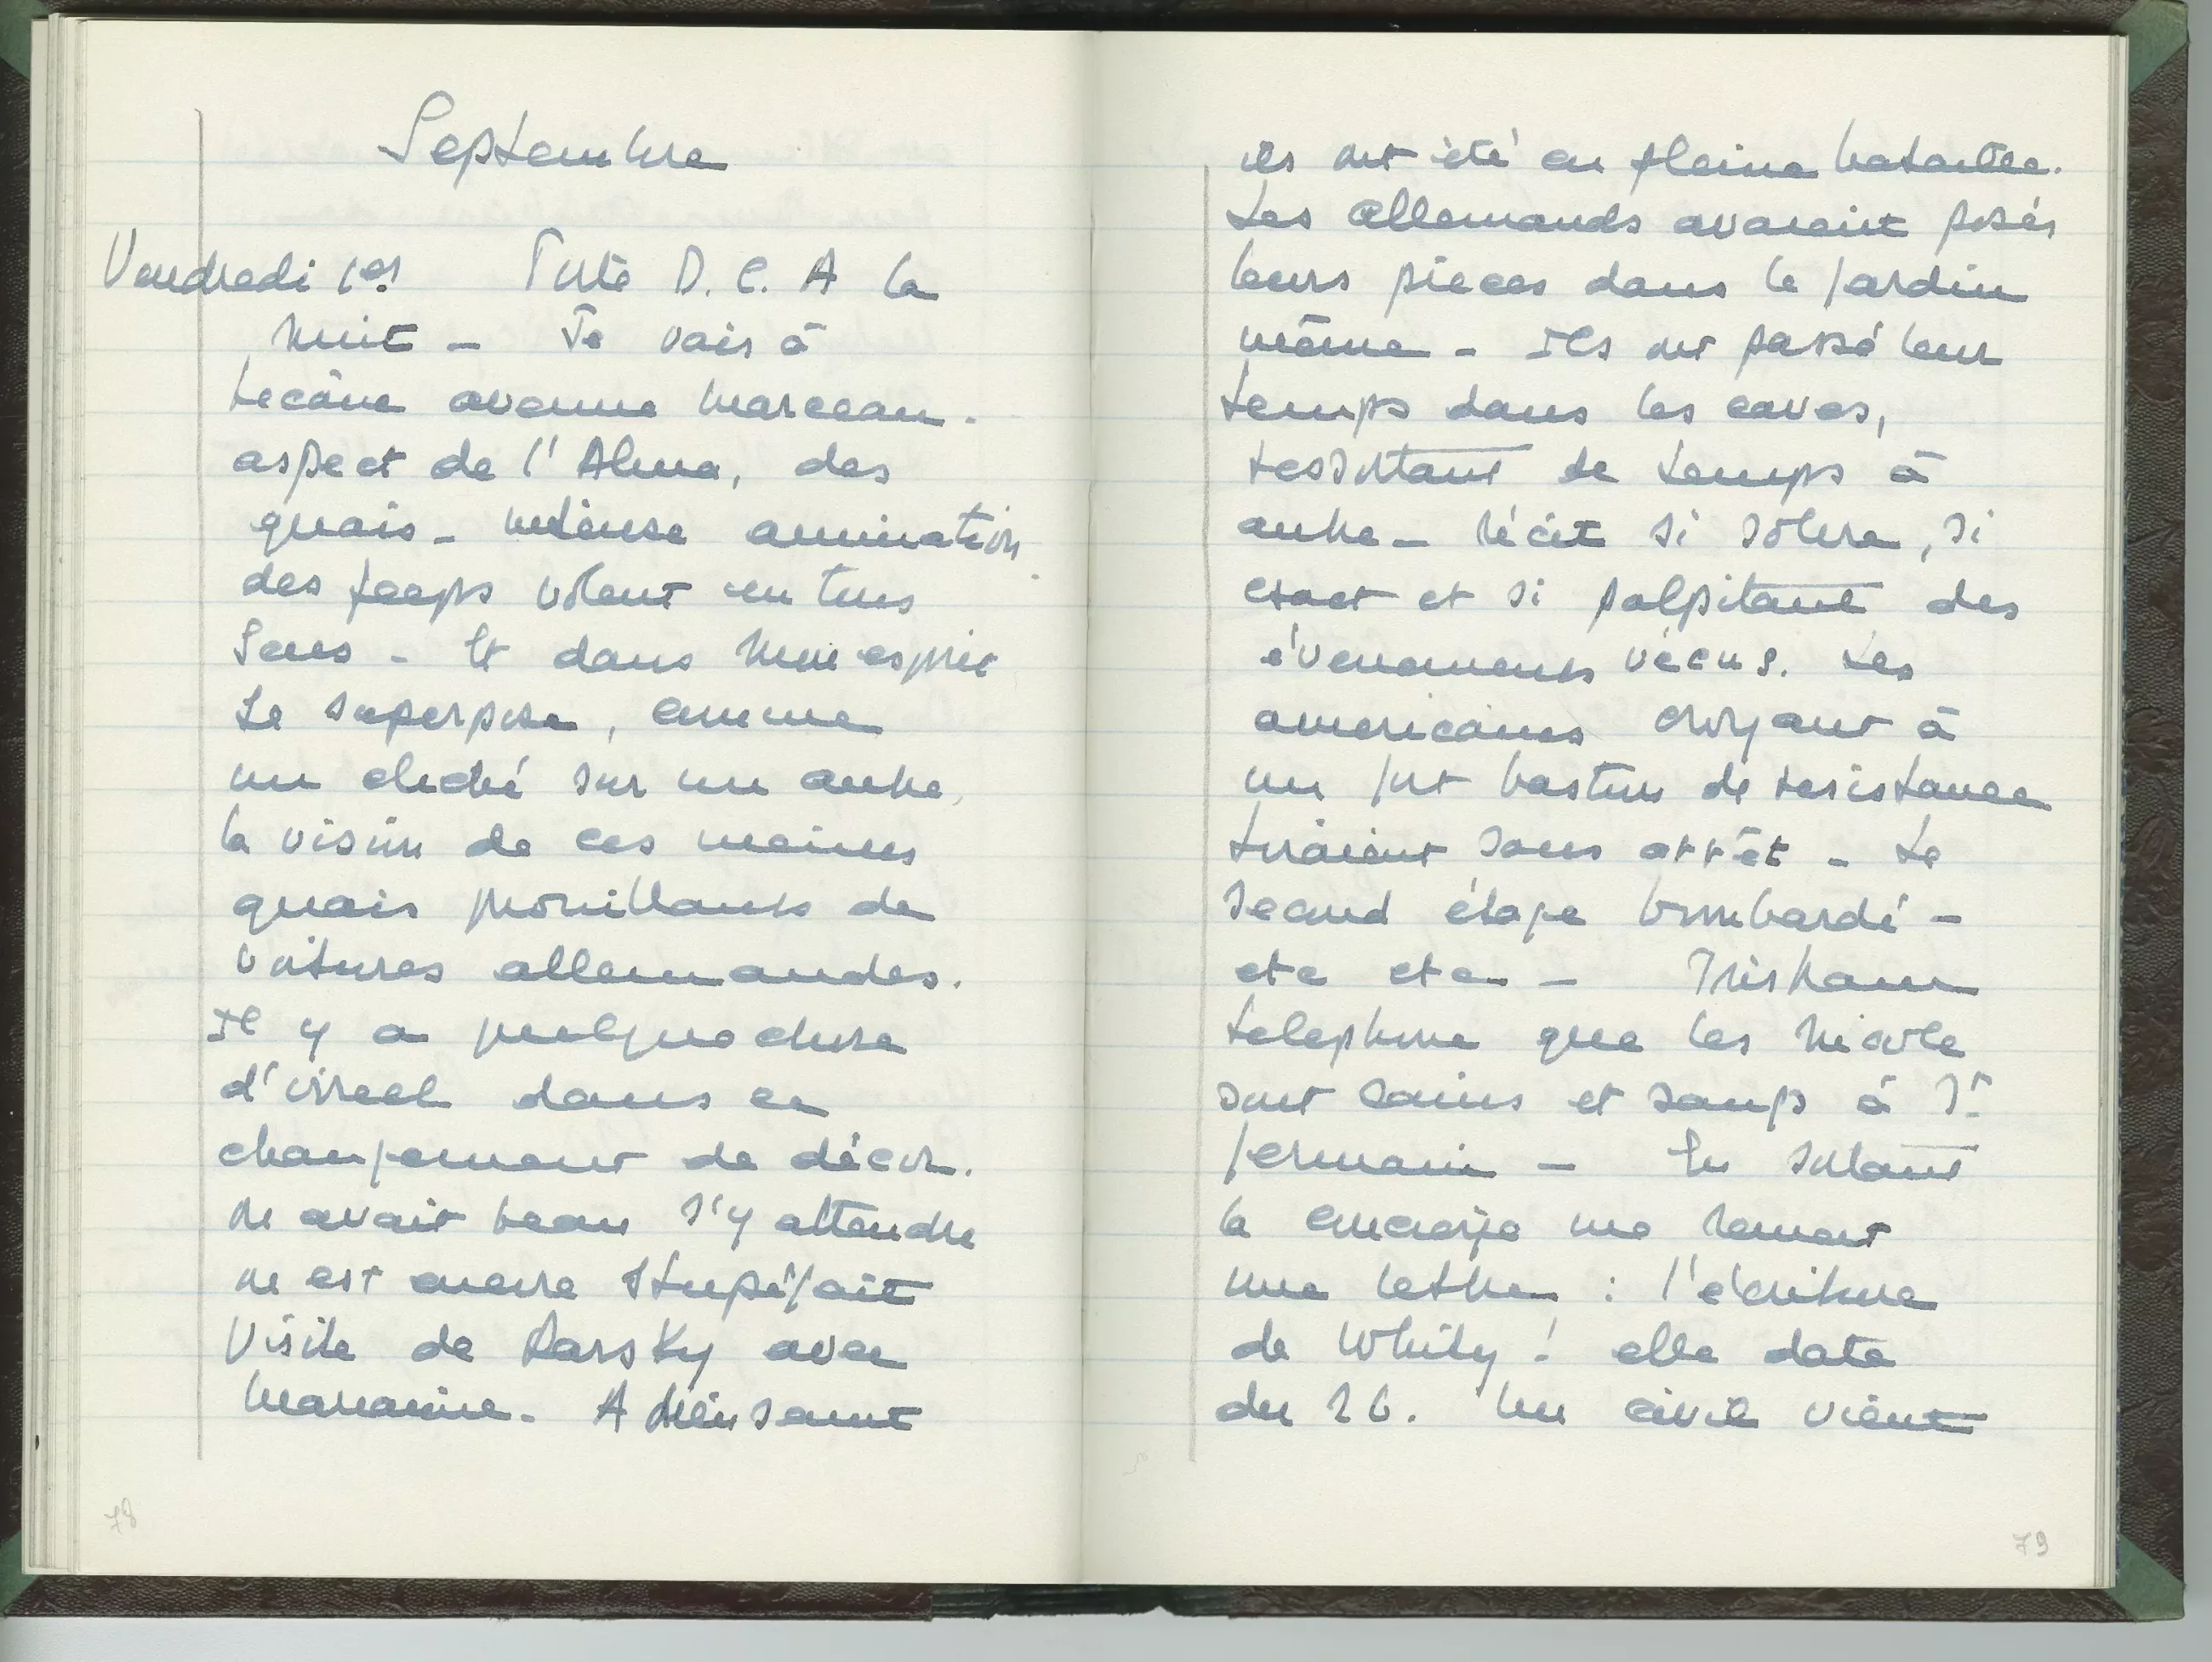 Septembre
Vendredi 1er Forte D.C.A la
nuit - Je vais à
Lecâne avenue Marceau.
aspect de l'Alma, des
quais - intense animation
des jeeps volent en tous
sens - Et dans mon esprit
se superpose, comme
un cliché sur un autre,
la vision de ces mêmes
quais grouillants de
voitures allemandes.
Il y a quelque chose
d'irréel dans ce
changement de décor.
on avait beau s'y attendre
on est encore stupéfait
Visite de Darsky avec
Marianne. A
ils ont été en pleine bataille.
Les allemands avaient posés
leurs pieces dans le jardin
même - Ils ont passé leur
temps dans les caves,
ressortant de temps à
autre - récit si sobre, si
exact et si palpitant des
évenements vécus. Les
americains croyant à
un fort bastion de resistance
tiraient sans arrêt - Le
second étage bombardé -
etc etc - Tristram
telephone que les Nicole
sont sains et saufs à St
Germain - En sortant
la concierge me remet
une lettre : l'écriture
de Whity ! elle date
du 26. Un civil vient
78
79